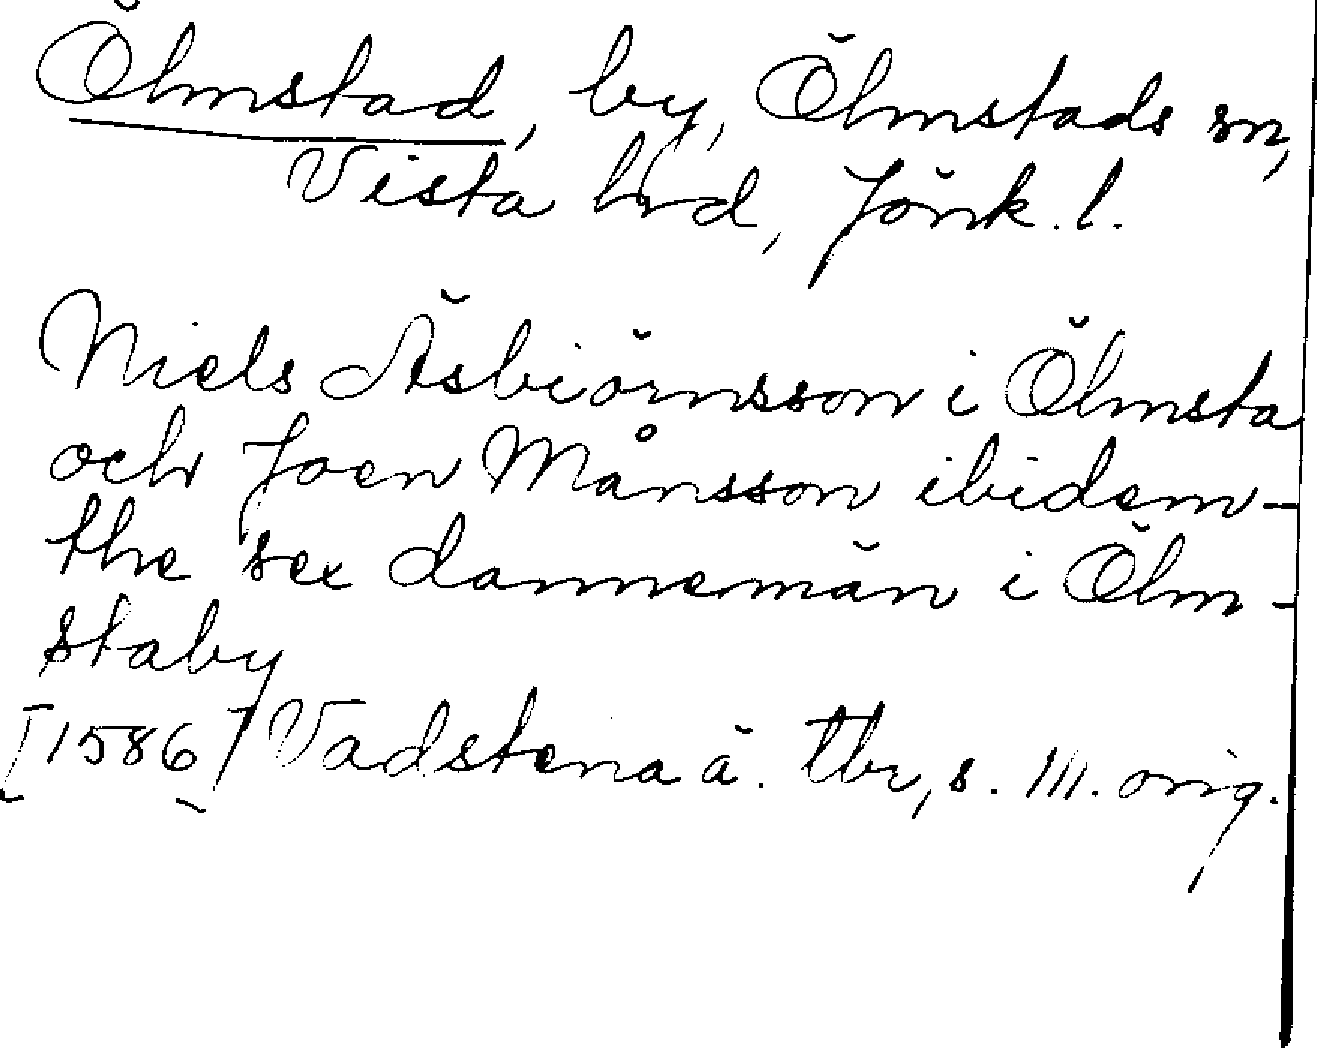 Ölmstad, by, Ölmstads sn,
Vista hrd, Jönk. l.
Niels Äsbiörnsson i Ölmsta
och Joen Månsson ibidem -
the sex dannemän i Ölm-
staby
[1586] Vadstena ä. tbr, s. 111. orig.